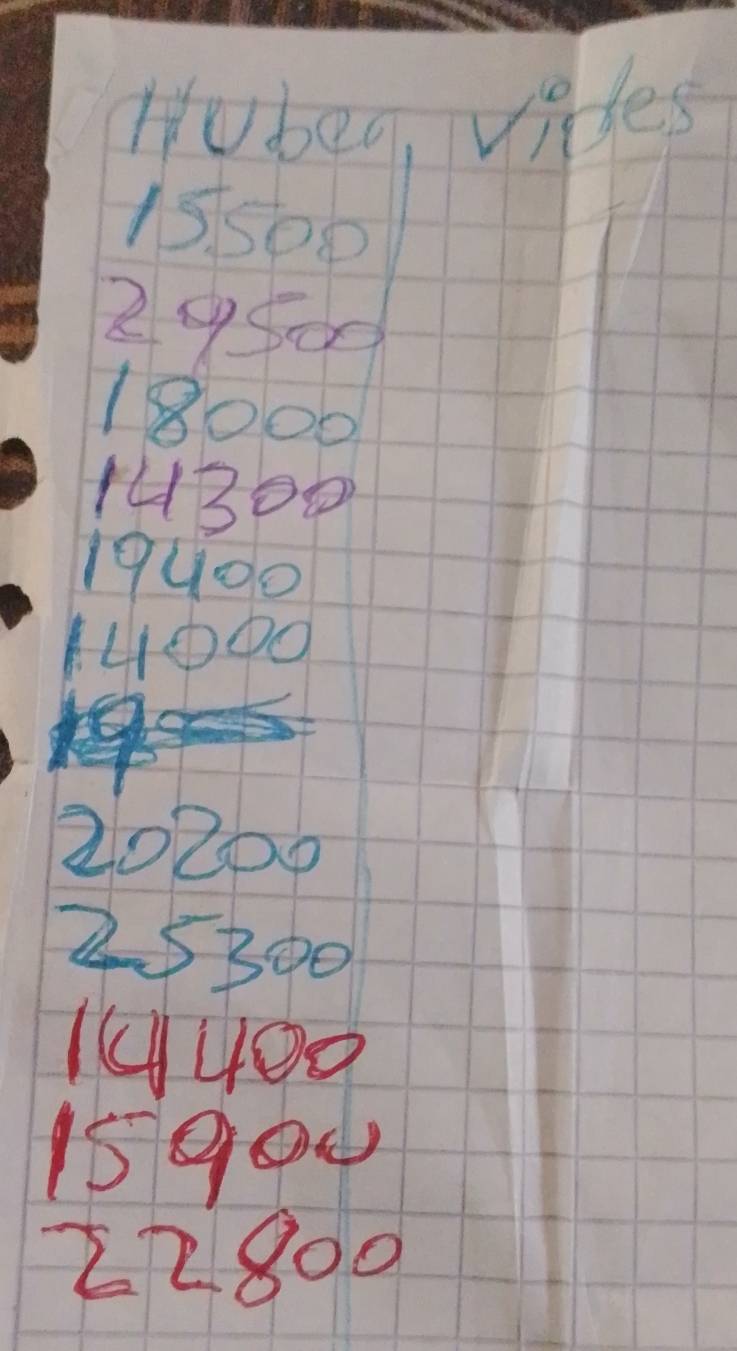 Huber vides
15.500
29500
18000
14300
19400
14000
20200
25300
14400
15900
22800